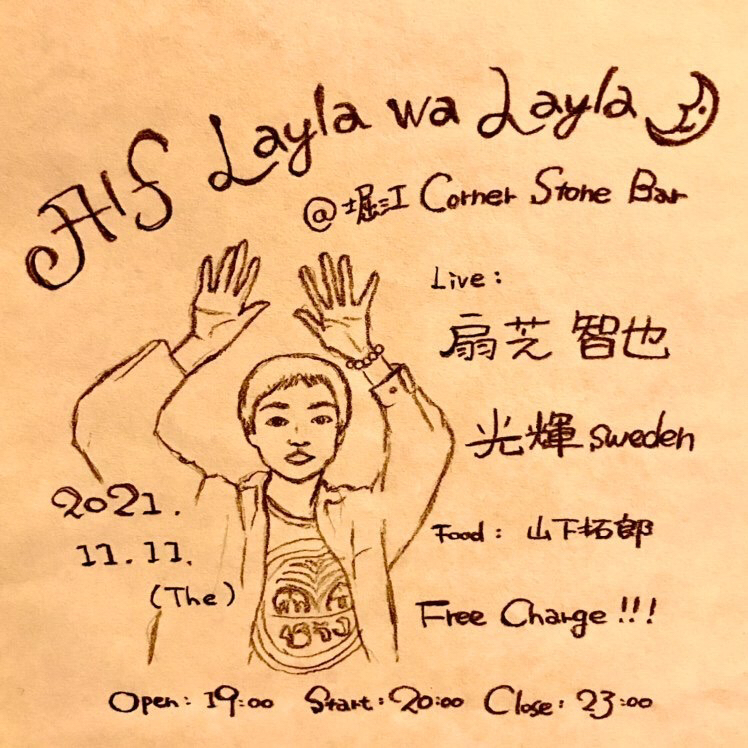 Alf Layla wa Layla
@堀江 Corner Stone Bar
Live:
扇芝 智也
光輝.sweden
2021.
11.11.
(The)
Food: 山下拓郎
Free Charge !!!
Open: 19:00 Start: 20:00 Close: 23:00